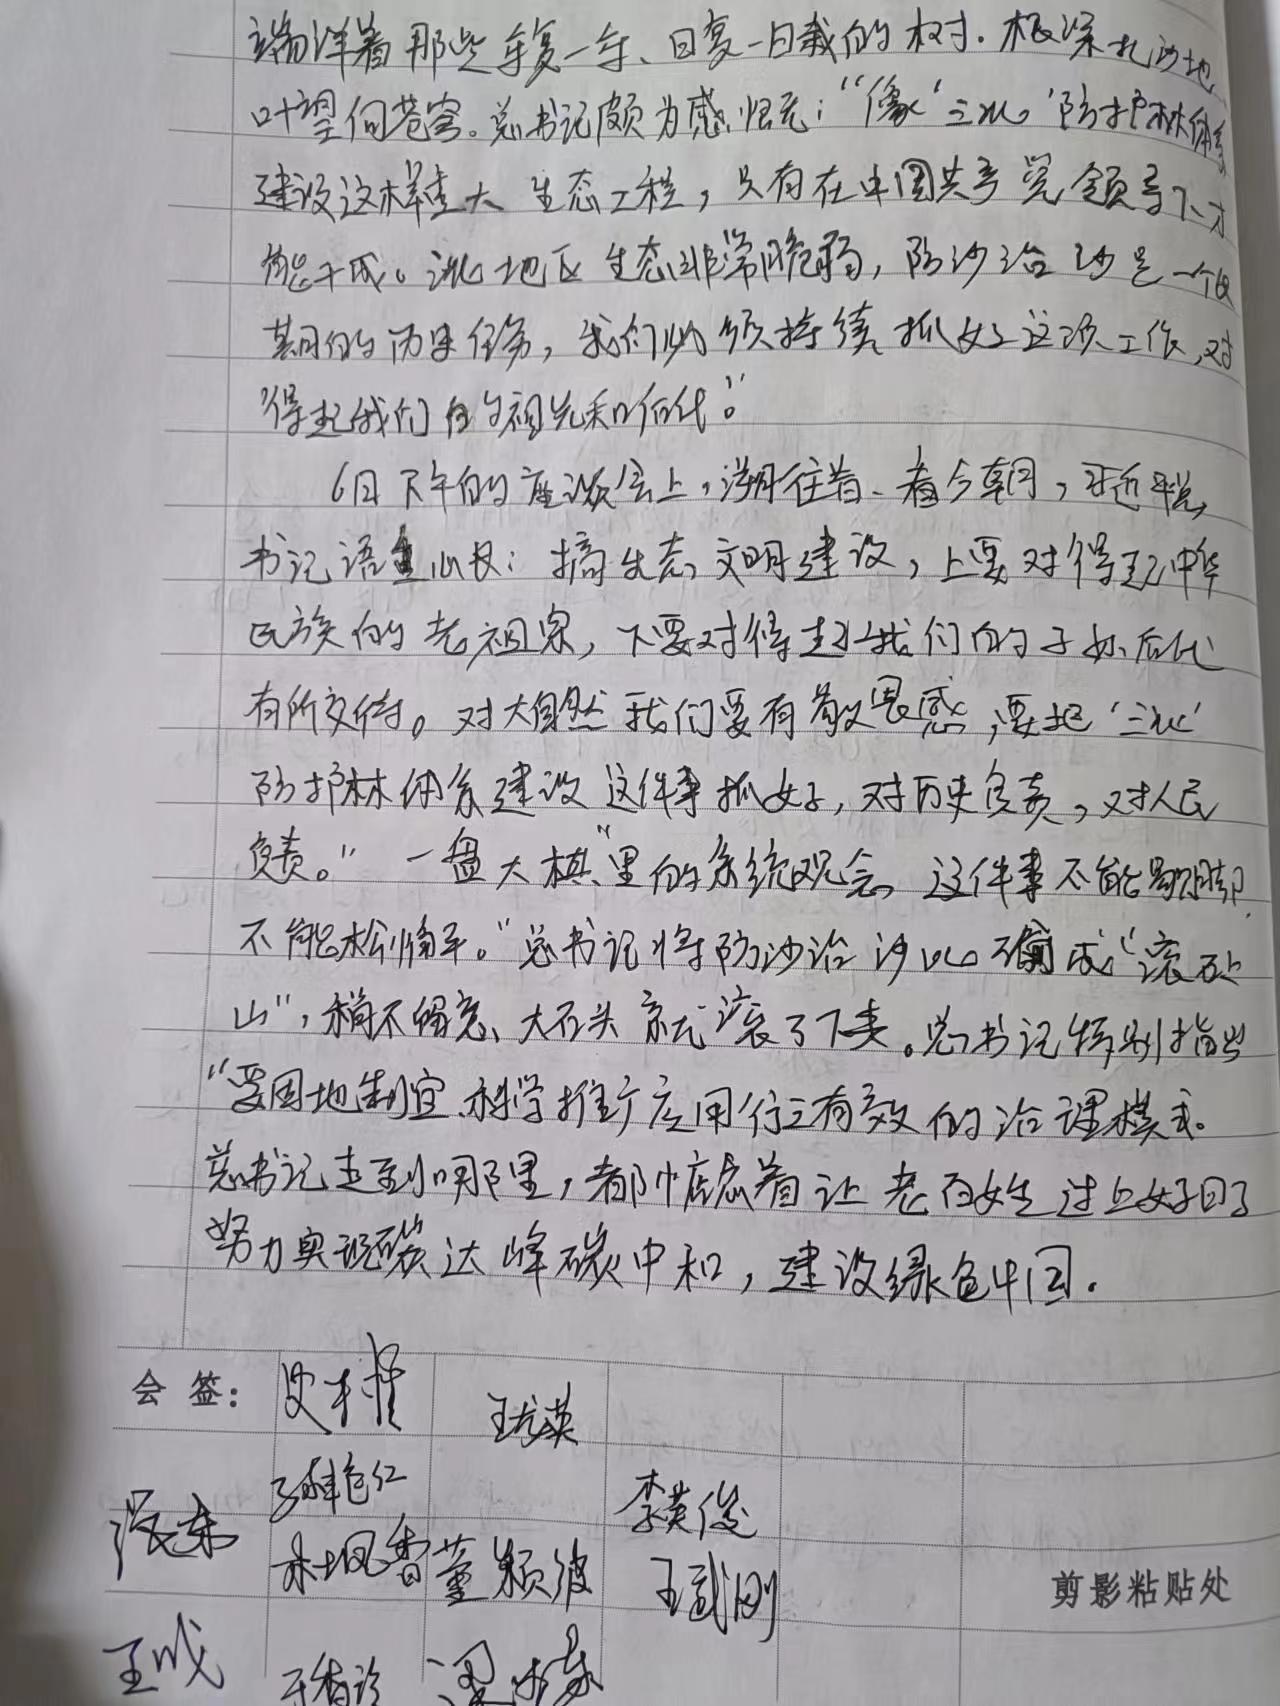 端详着那些年复一年、日复一日栽的树.根深扎沙地
叶望向苍穹。总书记颇为感慨:“像‘三北’防护林体系
建设这样重大生态工程,只有在中国共产党领导下、才
能干成。三北地区生态非常脆弱,防沙治沙是一个长
期的历史任务,我们必须持续抓好这项工作,对
得起我们的祖先和后代。”
6日下午的座谈会上,溯往昔、看今朝,习近平总
书记语重心长:搞生态文明建设,上要对得起中华
民族的老祖宗,下要对得起我们的子孙后代
有所交待。对大自然我们要有敬畏感,要把‘三北’
防护林体系建设这件事抓好,对历史负责,对人民
负责。”一盘大棋“里的系统观念,这件事不能歇脚,
不能松懈。“总书记将防沙治沙比喻成“滚石上
山”,稍不留意、大石头就滚了下来。总书记特别指出
“要因地制宜、科学推广应用行之有效的治理模式。
总书记走到哪里,都惦念着让老百姓过上好日子
努力实现碳达峰碳中和,建设绿色中国.
会 签:
王龙英
李英俊
杜凤香 董颖波 王武刚
剪影粘贴处
王成